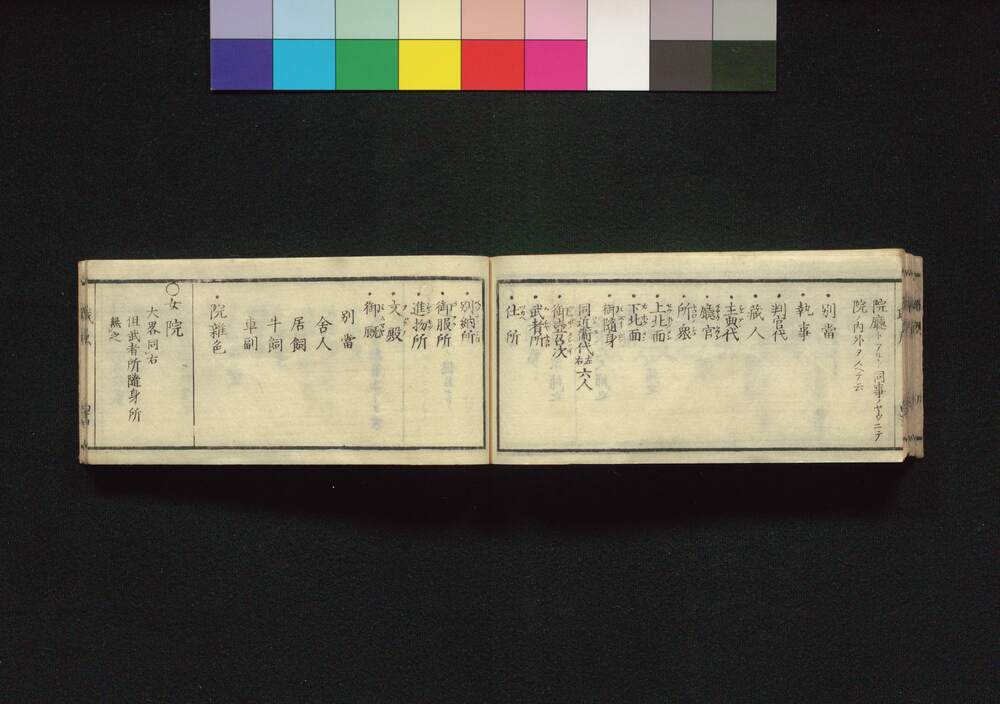 院廳トアルハ同事ノヤウニテ
院ノ内外ヲヘテ云
別當
執事
判官代
蔵人
主典代
廳官
所衆
上北面
下北面
御隨身
同近衞代左右六人
御壺召次
武者所
仕所
別納所
御服所
進物所
文殿
御厩
別當
舎人
居飼
牛飼
車副
院雜色
〇女院
大畧同右
但武者所隨身所
無之